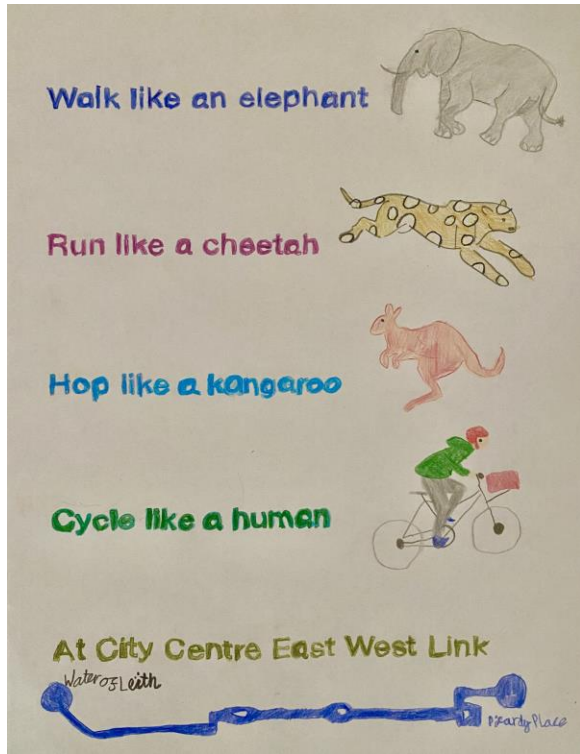 Walk like an elephant
Run like a cheetah
Hop like a kangaroo
Cycle like a human
At City Centre East West Link
Water of Leith
Picardy Place